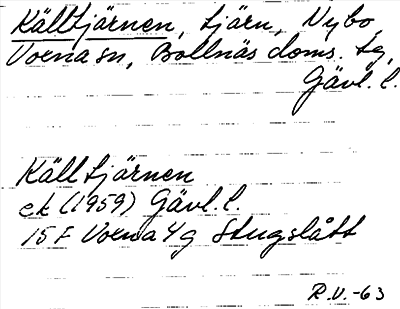 Källtjärnen, tjärn, Nybo,
Voxna sn, Bollnäs doms. tg,
Gävl. l.
Källtjärnen
ek (1959) Gävl. l.
15 F Voxna 4 g Stugslått
R.V.-63